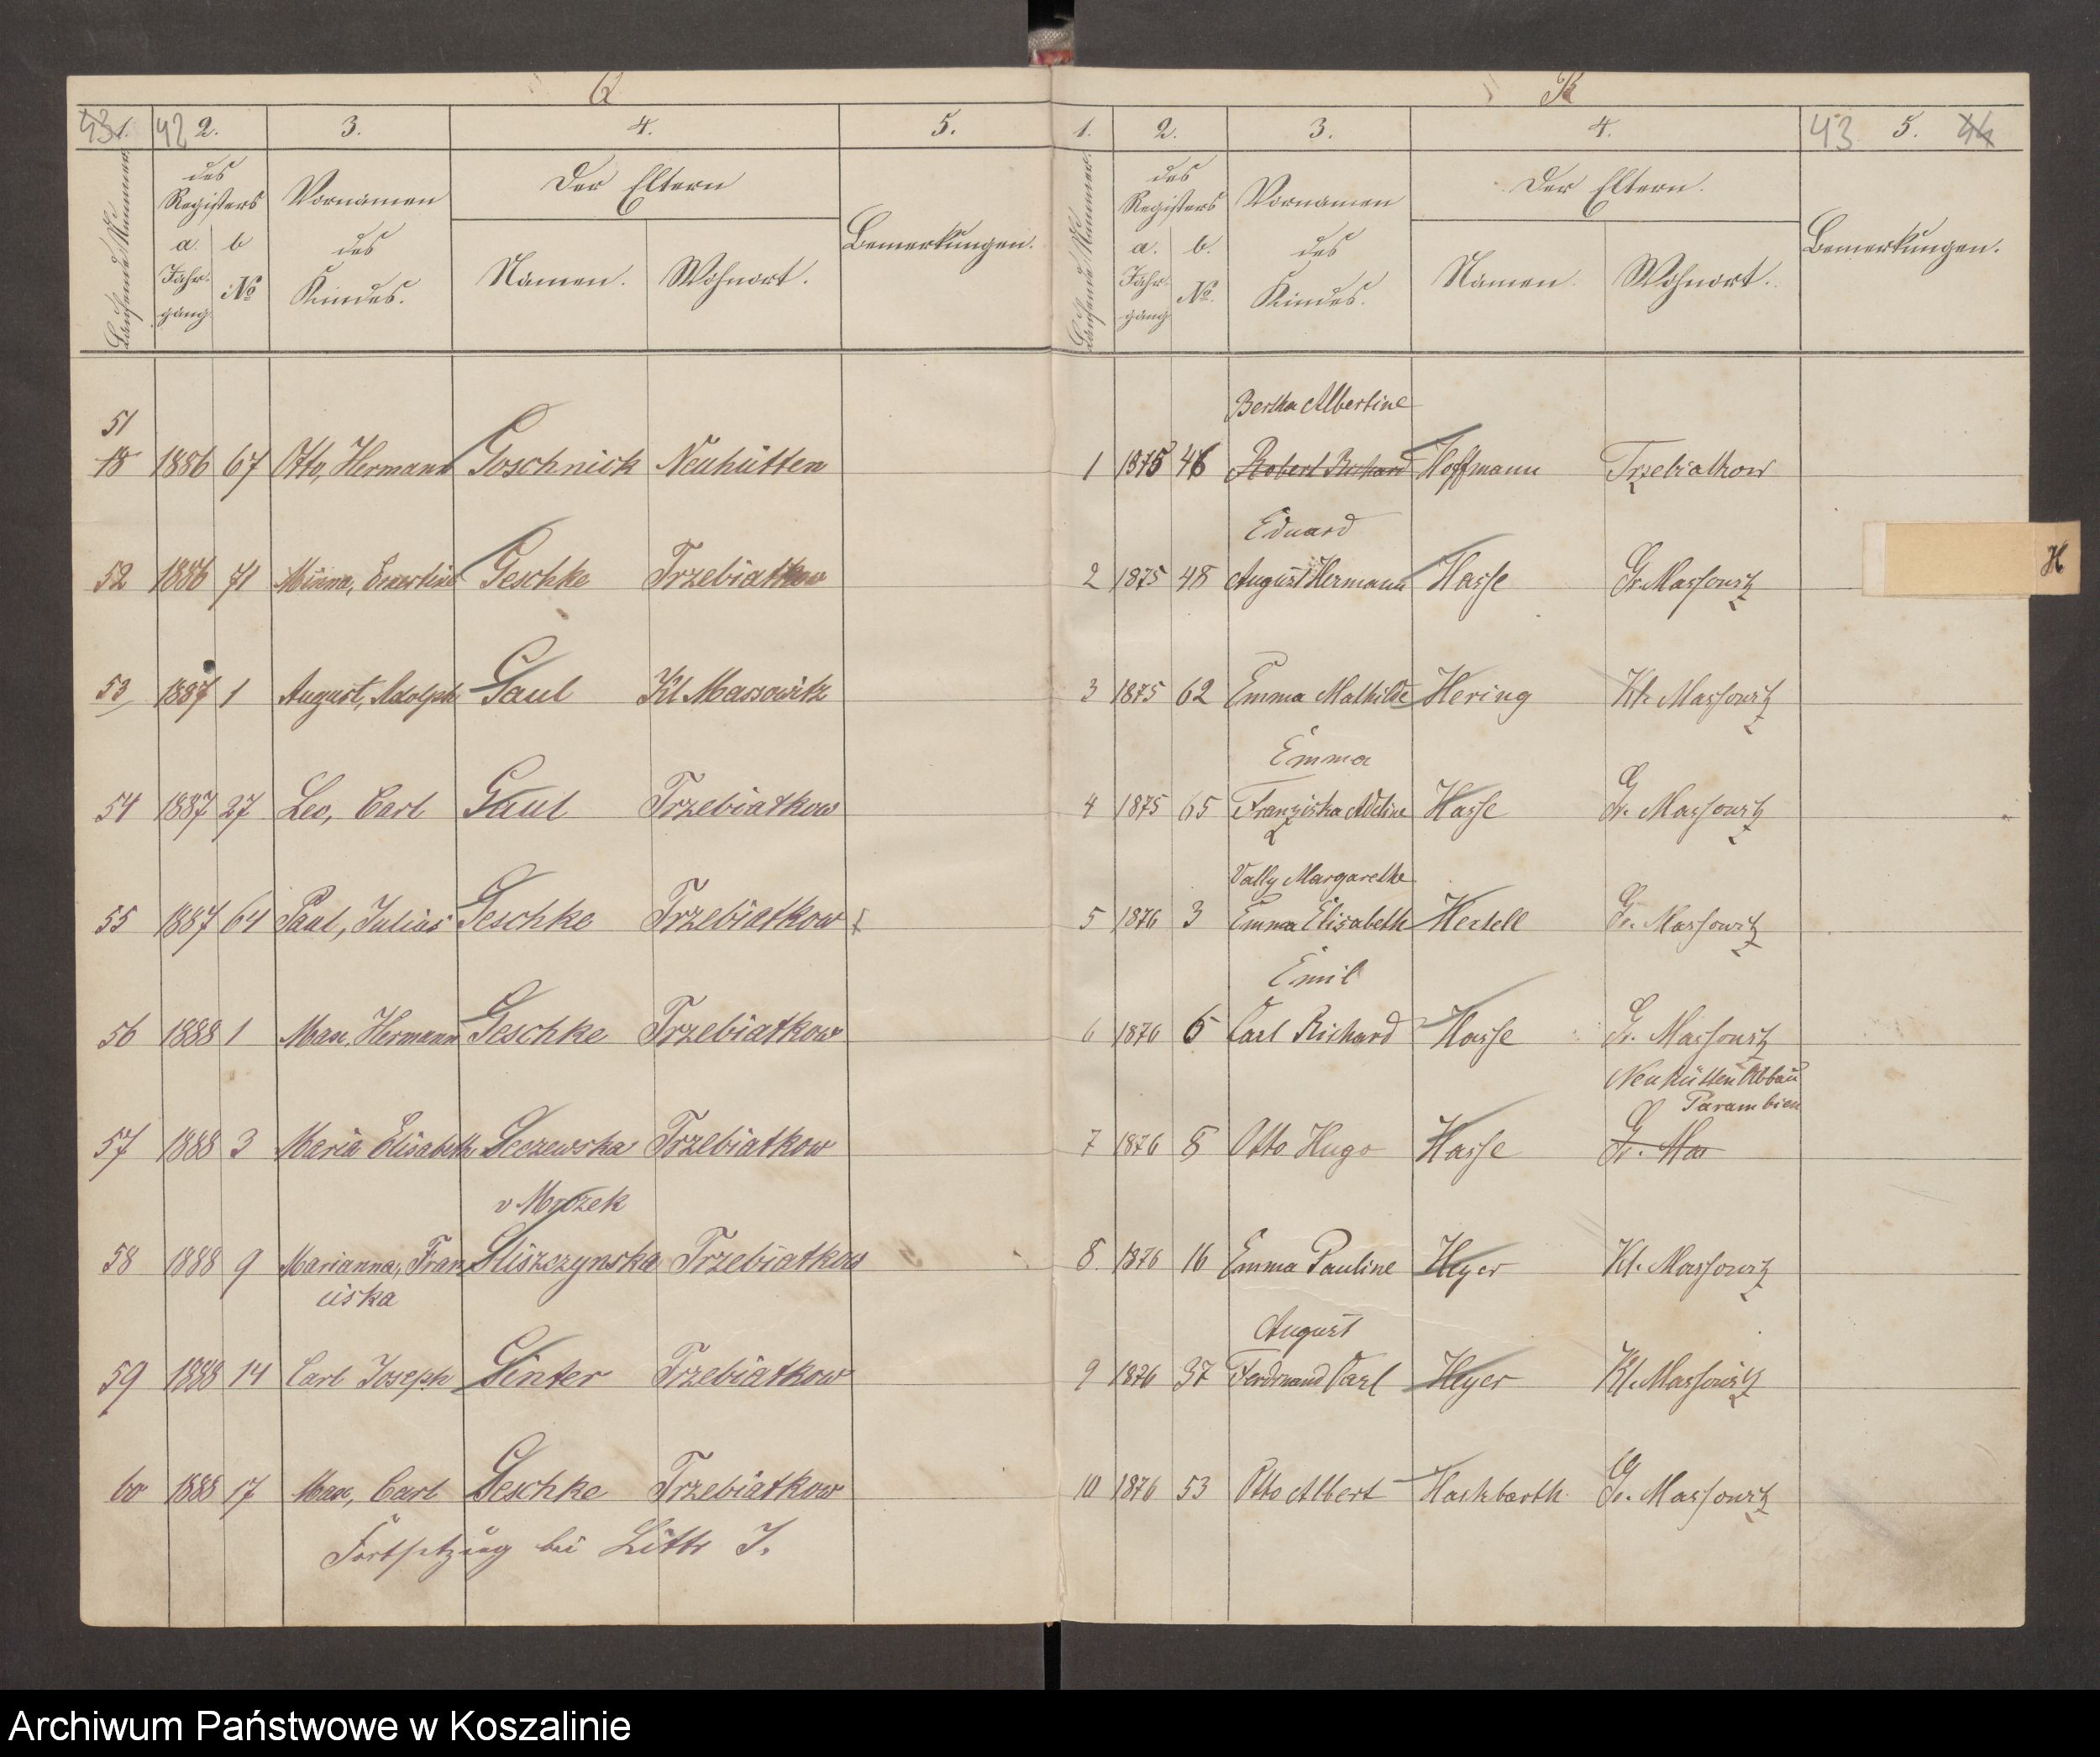 G
43 1. 42 2. 3. 4. 5.
Laufende Nummer.
des Registers
a. Jahrgang
b. No
Vornamen des Kindes.
Der Eltern
Namen. Wohnort.
Bemerkungen.
51
18 1886 67 Otto, Hermann Goschnick Neuhütten
52 1886 71 Minna, Ernestine Geschke Trzebiatkow
53 1887 1 August, Adolph Gaul Kl Massowitz
54 1887 27 Leo, Carl Gaul Trzebiatkow
55 1887 64 Paul, Julius Geschke Trzebiatkow
56 1888 1 Max, Hermann Geschke Trzebiatkow
57 1888 3 Maria Elisabeth Trzebiatkow
v Mrozek
58 1888 9 Marianna, Fran Gliszczynska Trzebiatkow
ciska
59 1888 14 Carl Joseph Ginter Trzebiatkow
60 1888 17 Max, Carl Geschke Trzebiatkow
Fortsetzung bei Littr J.
H
1. 2. 3. 4. 43 5. 44
Laufende Nummer.
des Registers
a. Jahrgang
b. No.
Vornamen des Kindes.
Der Eltern.
Namen. Wohnort.
Bemerkungen.
Bertha Albertine
1 1875 46 Robert Richard Hoffmann Trzebiatkow
Eduard
2 1875 48 August Hermann Hasse Gr. Massowitz
H
3 1875 62 Emma Mathilde Hering Kl. Massowitz
Emma
4 1875 65 Franziska Adeline Hasse Gr. Massowitz
Vally Margarethe
5 1876 3 Emma Elisabeth Hertell Gr. Massowitz
Emil
6 1876 6 Carl Richard Hasse Gr. Massowitz
Neuhütten Abbau
Parambien
7 1876 8 Otto Hugo Hasse Gr. Mas
8. 1876 16 Emma Pauline Heyer Kl. Massowitz
August
9 1876 37 Ferdinand Carl Heyer Kl. Massowitz
10 1876 53 Otto Albert Hackbarth Gr. Massowitz
Archiwum Państwowe w Koszalinie